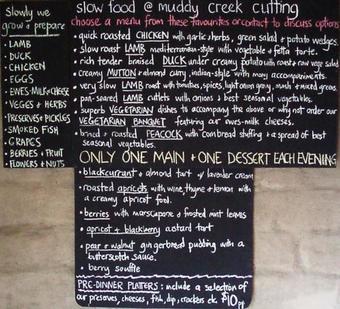 slowly we
grow & prepare
• LAMB
• DUCK
• CHICKEN
• EGGS
• EWES-MILK-CHEESE
• VEGES & HERBS
• PRESERVES & PICKLES
• SMOKED FISH
• GRAPES
• BERRIES & FRUIT
• FLOWERS & NUTS
slow food @ muddy creek cutting
choose a menu from these favourites or contact to discuss options
• quick roasted CHICKEN with garlic, herbs, green salad & potato wedges.
• slow roast LAMB mediterranean-style with vegetable & fetta torte.
• rich tender braised DUCK under creamy potato with roast & raw vege salad
• creamy MUTTON & almond curry, indian-style with many accompaniments.
• very slow LAMB roast with tomatoes, spices, light gravy, mash & mixed greens
• pan-seared LAMB cutlets with onions & best seasonal vegetables.
• superb VEGETARIAN dishes to accompany the above or why not order our
VEGETARIAN BANQUET featuring our ewes-milk cheeses.
• brined & roasted PEACOCK with corn bread stuffing & a spread of best
seasonal vegetables.
ONLY ONE MAIN & ONE DESSERT EACH EVENING
• blackcurrant & almond tart w/ lavender cream
• roasted apricots with wine, thyme & lemon with
a creamy apricot fool.
• berries with marscapone & frosted mint leaves
• apricot & blackberry custard tart
• pear & walnut gingerbread pudding with a
butterscotch sauce.
• berry souffle
PRE-DINNER PLATTERS: include a selection of
our preserves, cheeses, fish, dip, crackers etc $10 pp